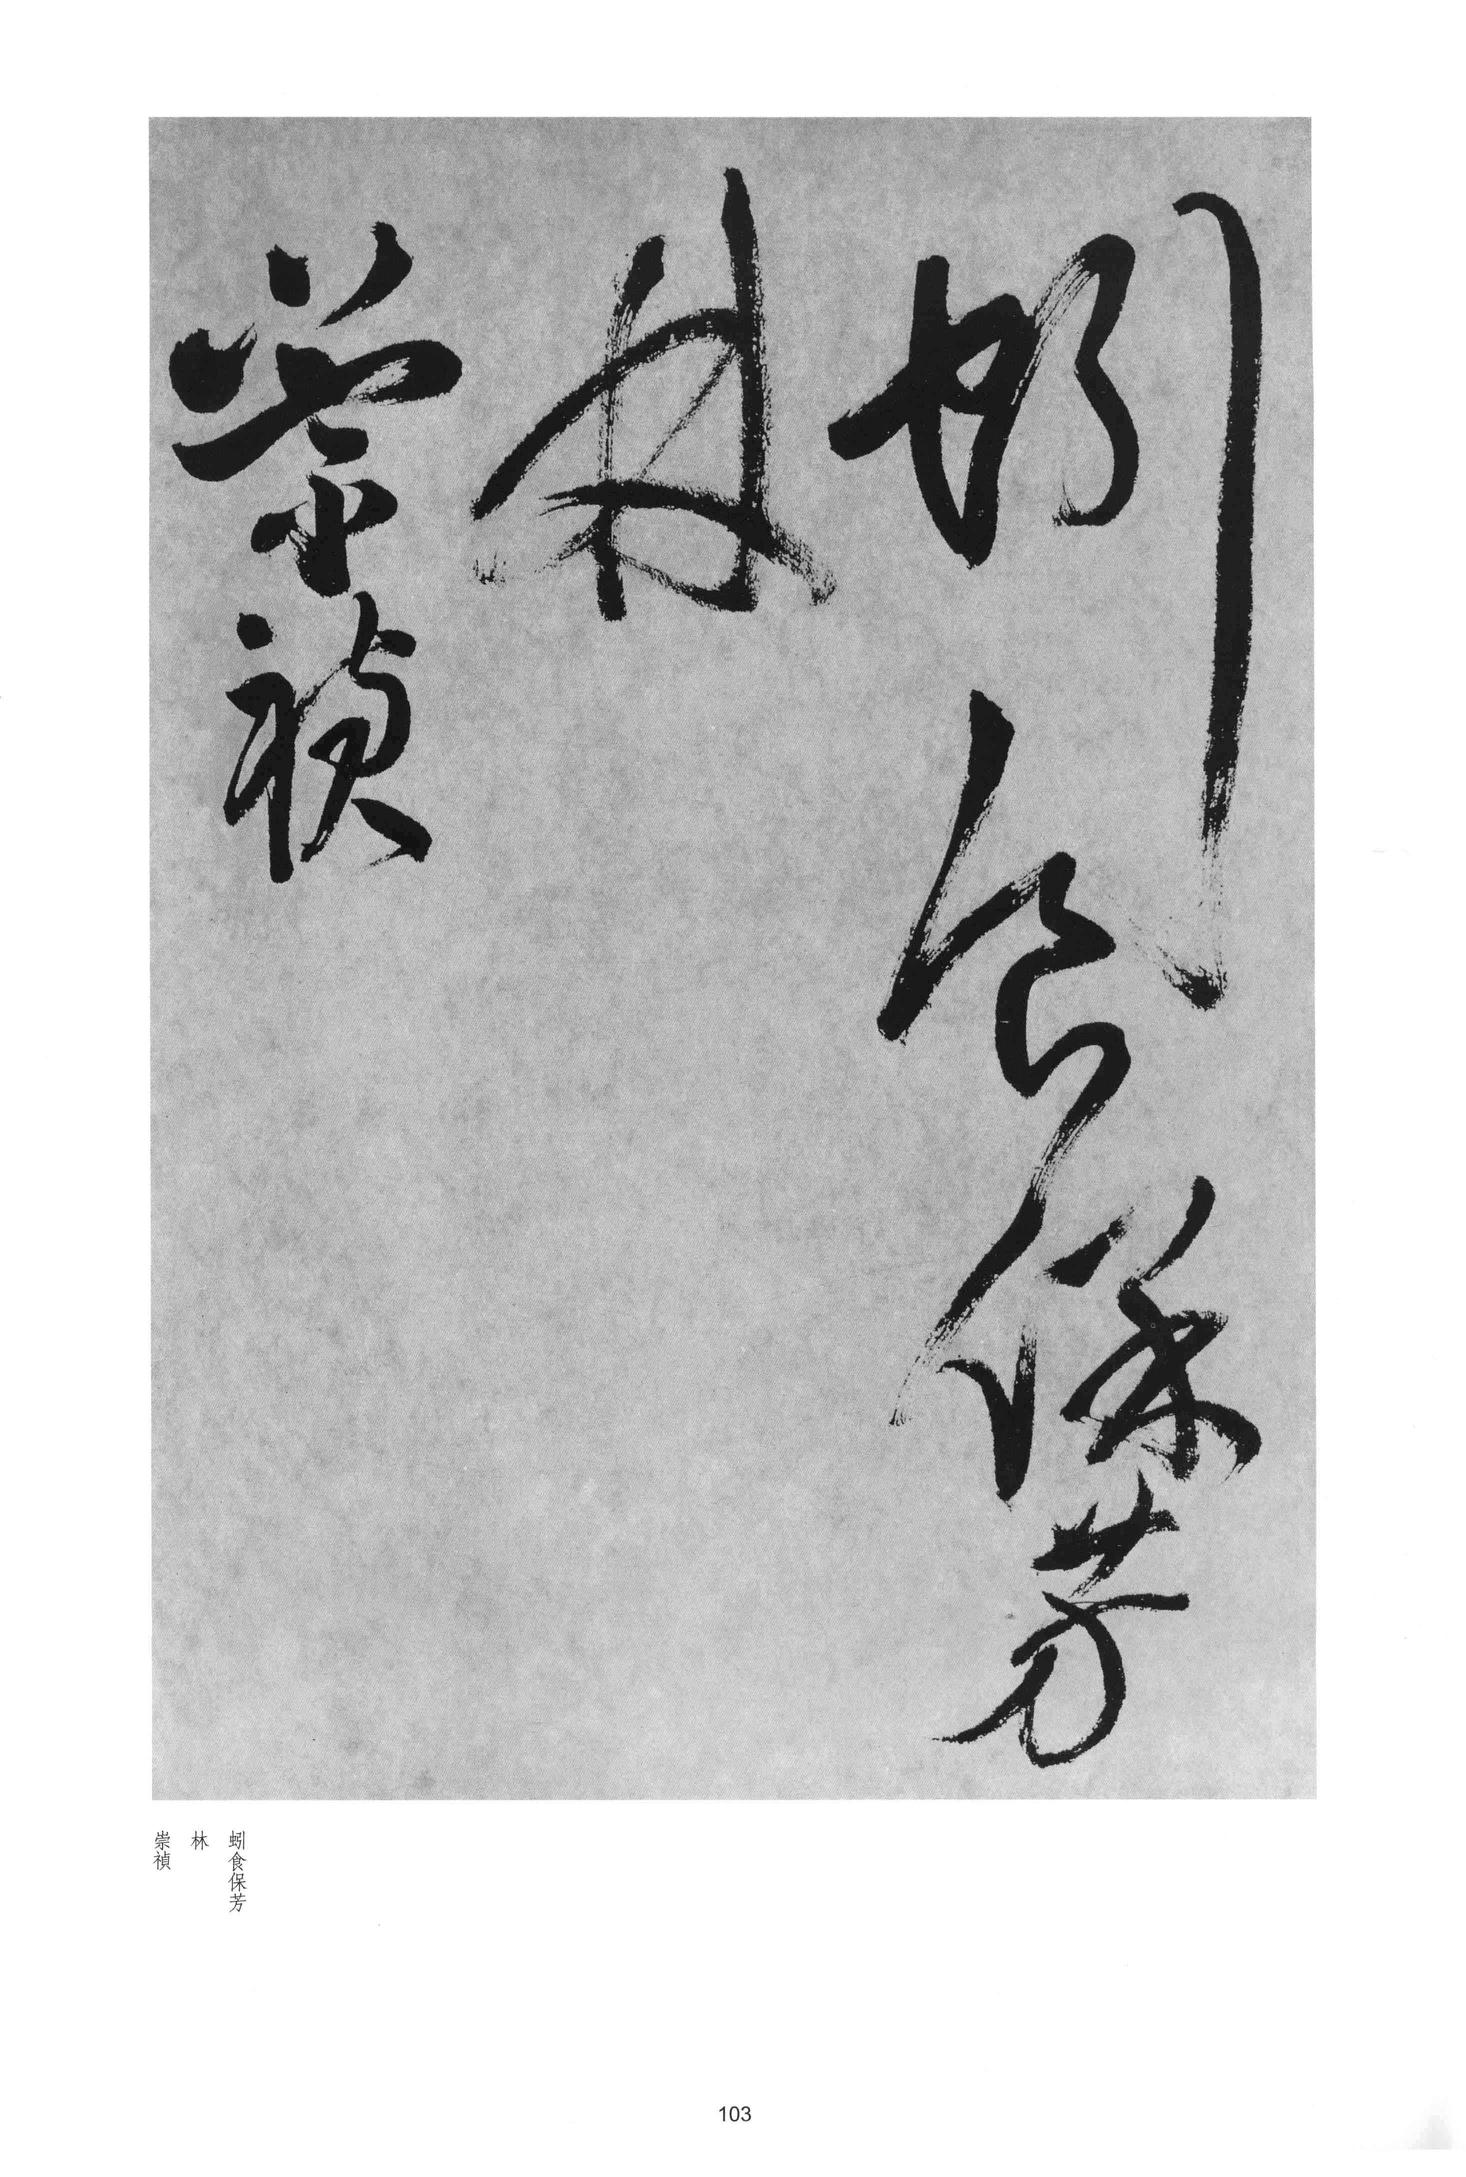 蚓食保芳
林
崇禎
蚓食保芳
林
崇禎
103